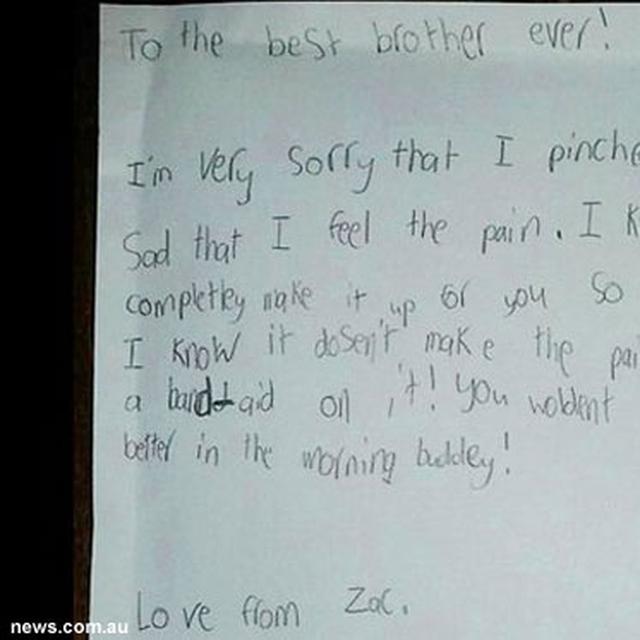 To the best brother ever!
I'm very sorry that I pinche
Sad that I feel the pain. I k
completley make it up for you so
I know it dosen't make the pai
a band-aid on it! you woldent
better in the morning buddey!
Love from Zac.
news.com.au